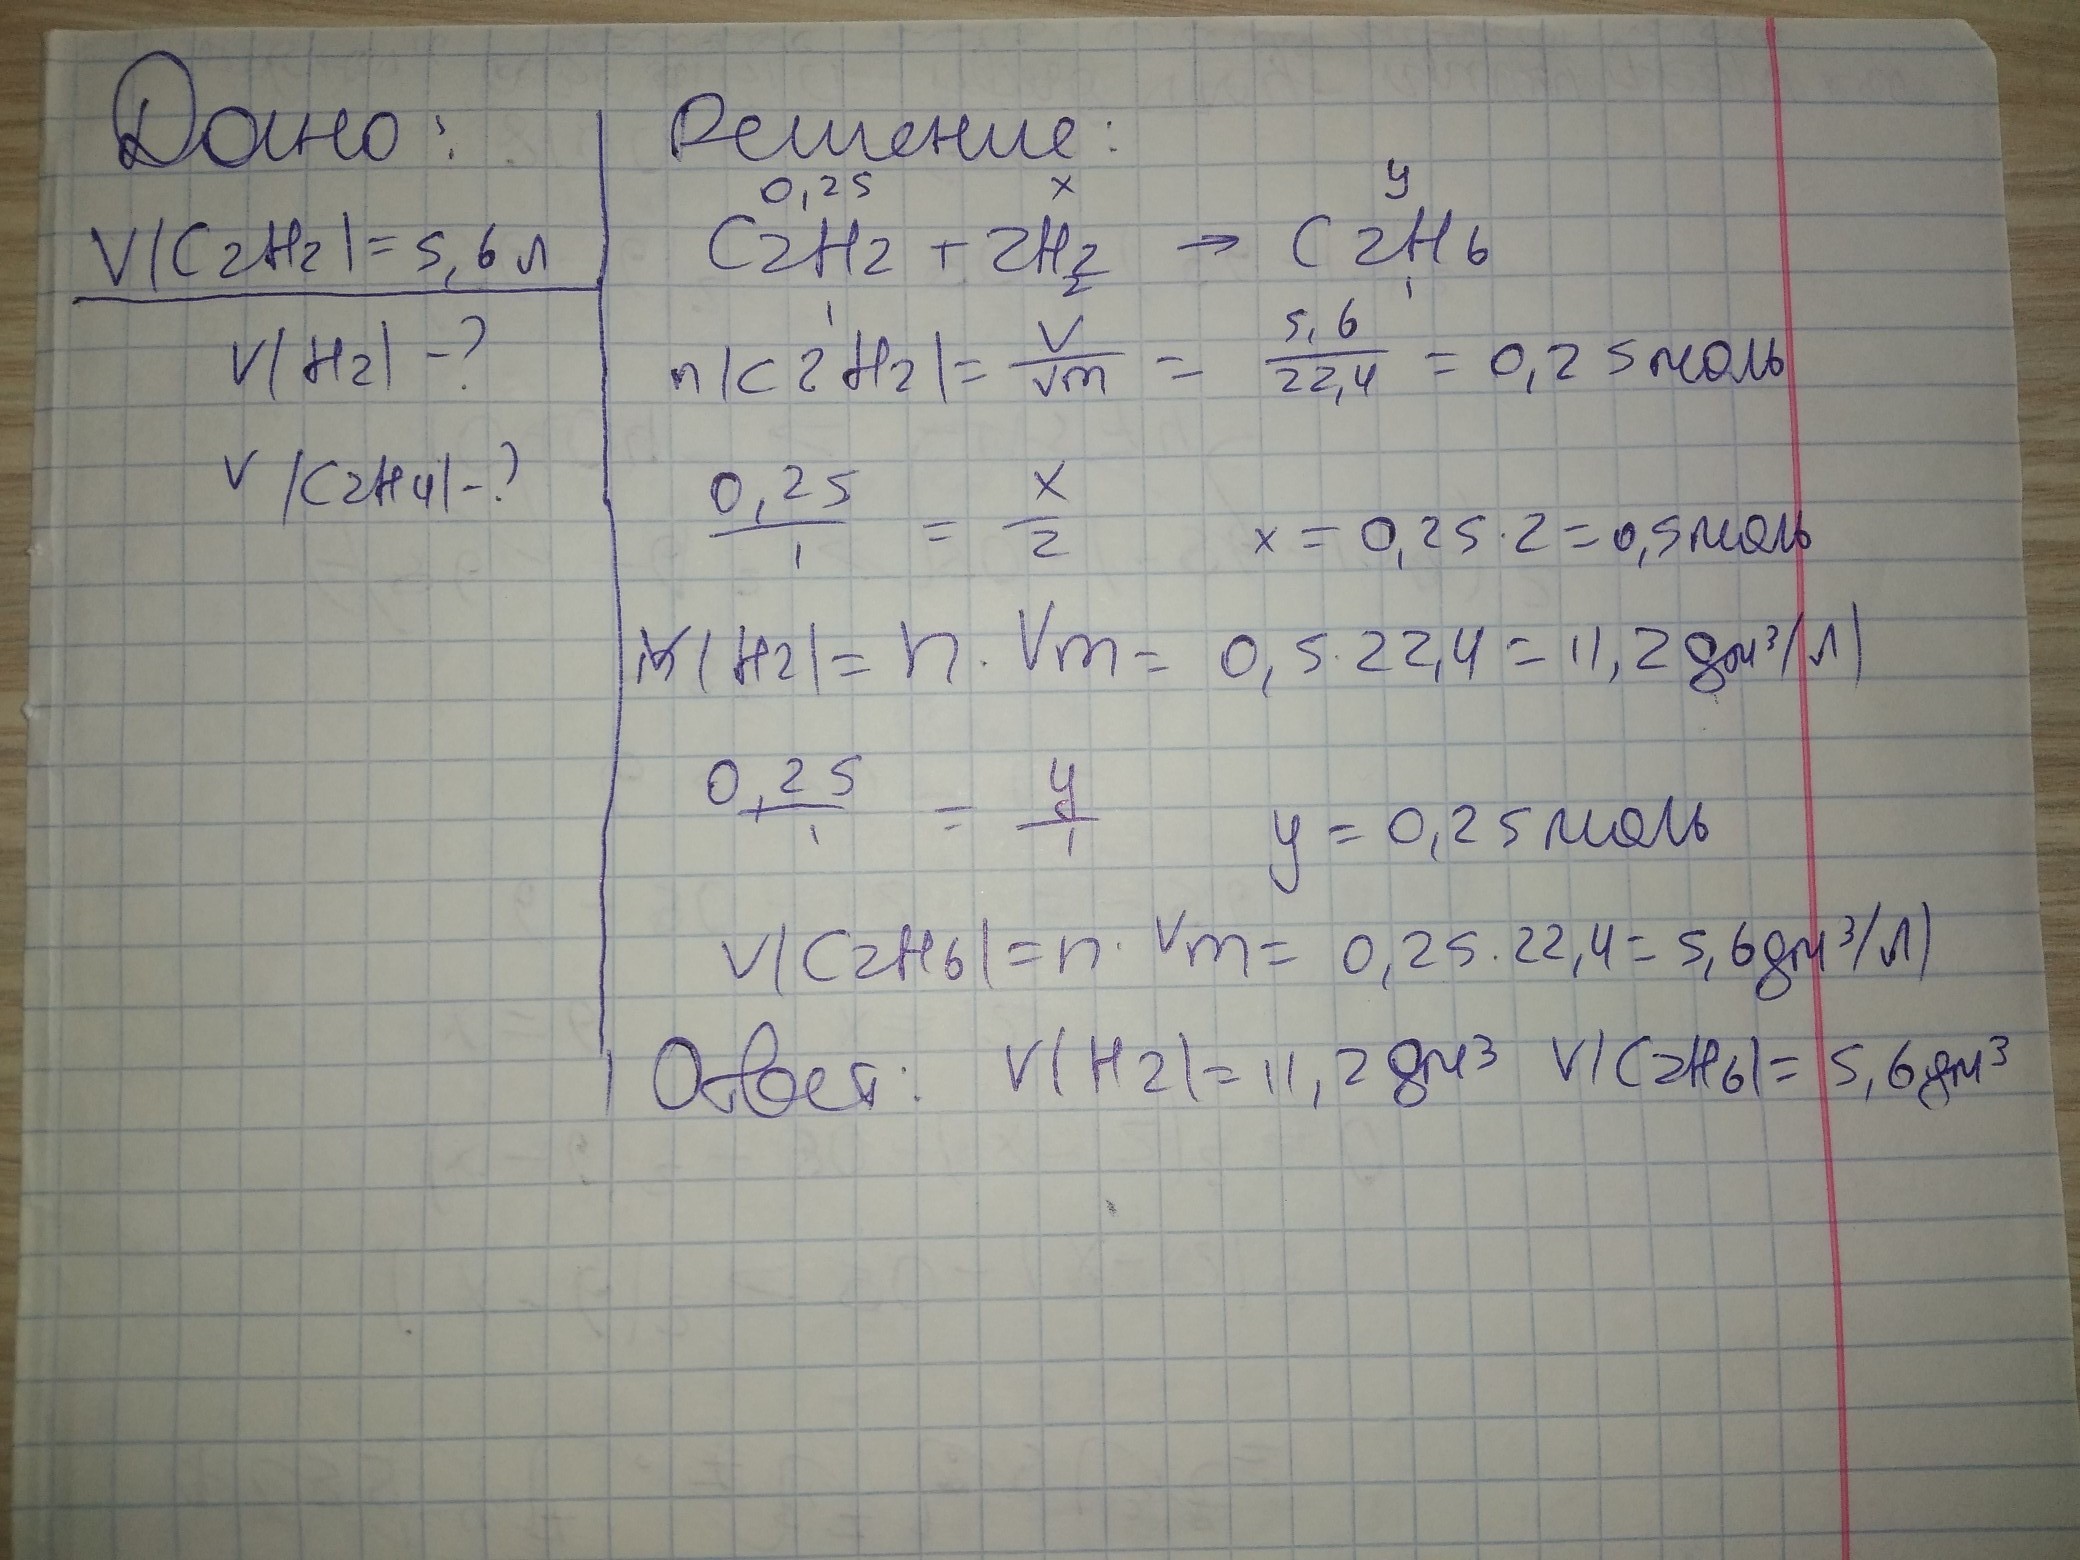 Дано:
V(C2H2)=5,6л
V(H2)-?
V(C2H4)-?
Решение:
0,25 x y
C2H2 + 2H2 → C2H6
1 2 1
n(C2H2)= V/Vm = 5,6/22,4 = 0,25моль
0,25/1 = x/2 x = 0,25·2=0,5моль
V(H2)= n·Vm= 0,5·22,4=11,2дм³(л)
0,25/1 = y/1 y = 0,25моль
V(C2H6)=n·Vm= 0,25·22,4=5,6дм³(л)
Ответ: V(H2)=11,2дм³ V(C2H6)=5,6дм³